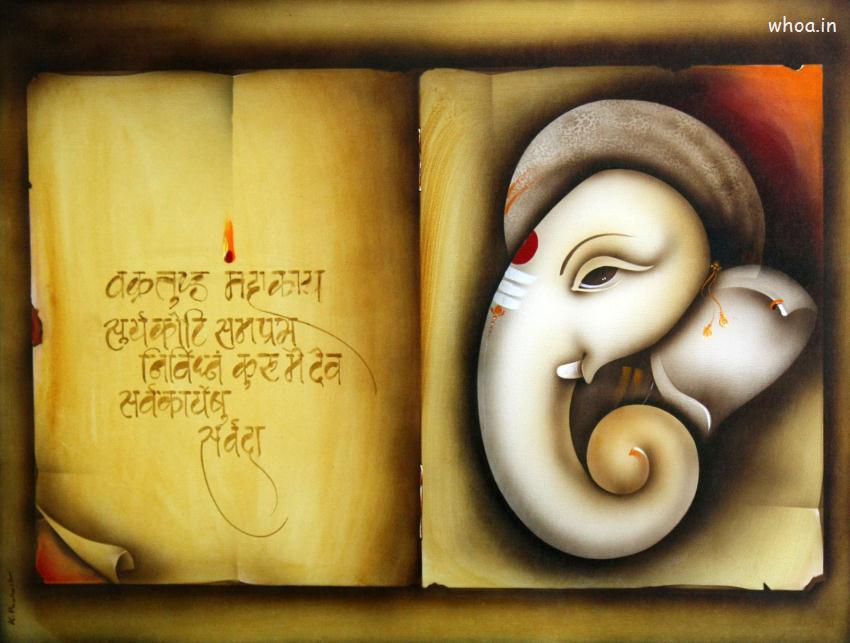 whoa.in
वक्रतुण्ड महाकाय
सुर्यकोटि समप्रभ
निर्विघ्नं कुरू मे देव
सर्वकार्येषु
सर्वदा